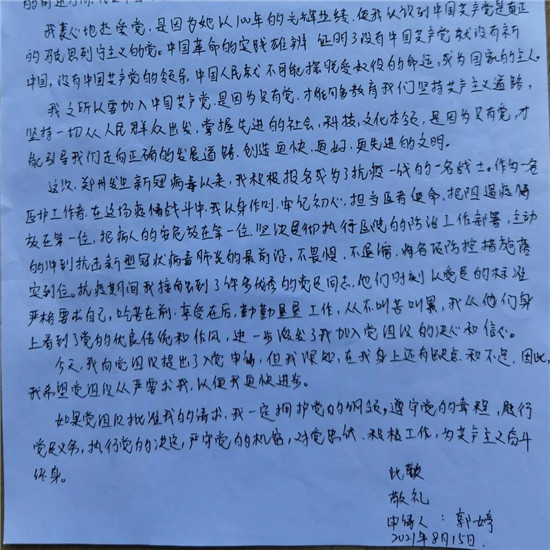 我衷心地热爱党,是因为她以100年的光辉业绩,使我认识到中国共产党是真正
的马克思列宁主义的党。中国革命的实践雄辩证明了没有中国共产党就没有新
中国,没有中国共产党的领导,中国人民就不可能摆脱受奴役的命运,成为国家的主人。
我之所以要加入中国共产党,是因为只有党,才能够教育我们坚持共产主义道路,
坚持一切从人民群众出发,掌握先进的社会,科技,文化本领,是因为只有党,才
能引导我们走向正确的发展道路,创造更快,更好,更先进的文明。
这次,郑州发生新冠病毒以来,我积极报名成为了抗疫一线的一名战士。作为一名
医护工作者,在这场疫情战斗中,我以身作则,牢记初心,担当医者使命,把阻遏疫情
放在第一位,把病人的安危放在第一位,坚决是仰执行医院的防治工作部署,主动
的冲到抗击新型冠状病毒肺炎的最前沿,不畏惧,不退缩,将各项防控措施落
实到位。抗疫期间我接触到了许多优秀的党员同志,他们时刻以党员的标准
严格要求自己,吃苦在前,享受在后,勤勤恳恳工作,从不叫苦叫累,我从他们身
上看到了党的优良传统和作风,进一步激发了我加入党组织的决心和信心。
今天,我向党组织提出了入党申请,但我深知,在我身上还有缺点和不足,因此,
我希望党组织从严要求我,以便我更快进步。
如果党组织批准我的请求,我一定拥护党的纲领,遵守党的章程,履行
党员义务,执行党的决定,严守党的机密,对党忠诚,积极工作,为共产主义奋斗
终身。
此致
敬礼
申请人:郭婷
2021年8月15日.